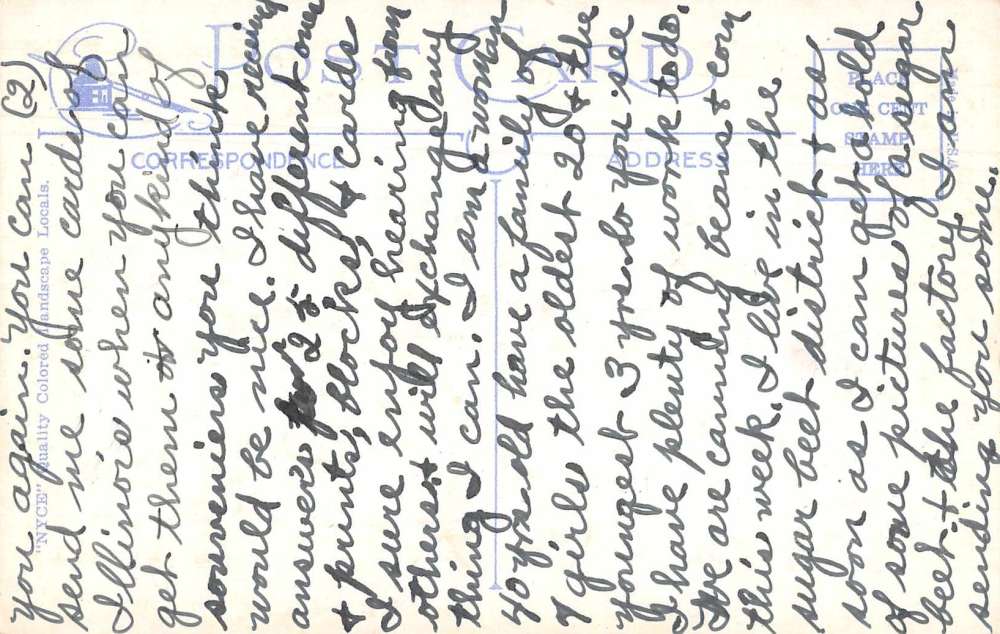 (2)
you again. You can
send me some cards of
Illinois when you can
get them & any kind of
souveniers you think
would be nice. I have recieved
answers 25 different ones
& prints, blocks, & cards
I sure enjoy hearing from
others & will exchange any
thing I can. I am a woman
40 yrs old have a family of
7 girls the oldest 20 & the
youngest 3 yrs. So you see
I have plenty of work to do.
We are canning beans & corn
this week. I live in the
sugar beet district & as
soon as I can get ahold
of some pictures of a sugar
beet & the factory I am
sending you some.
POST CARD
CORRESPONDENCE
ADDRESS
PLACE
ONE CENT
STAMP
HERE
"NYCE" Quality Colored Landscape Locals.